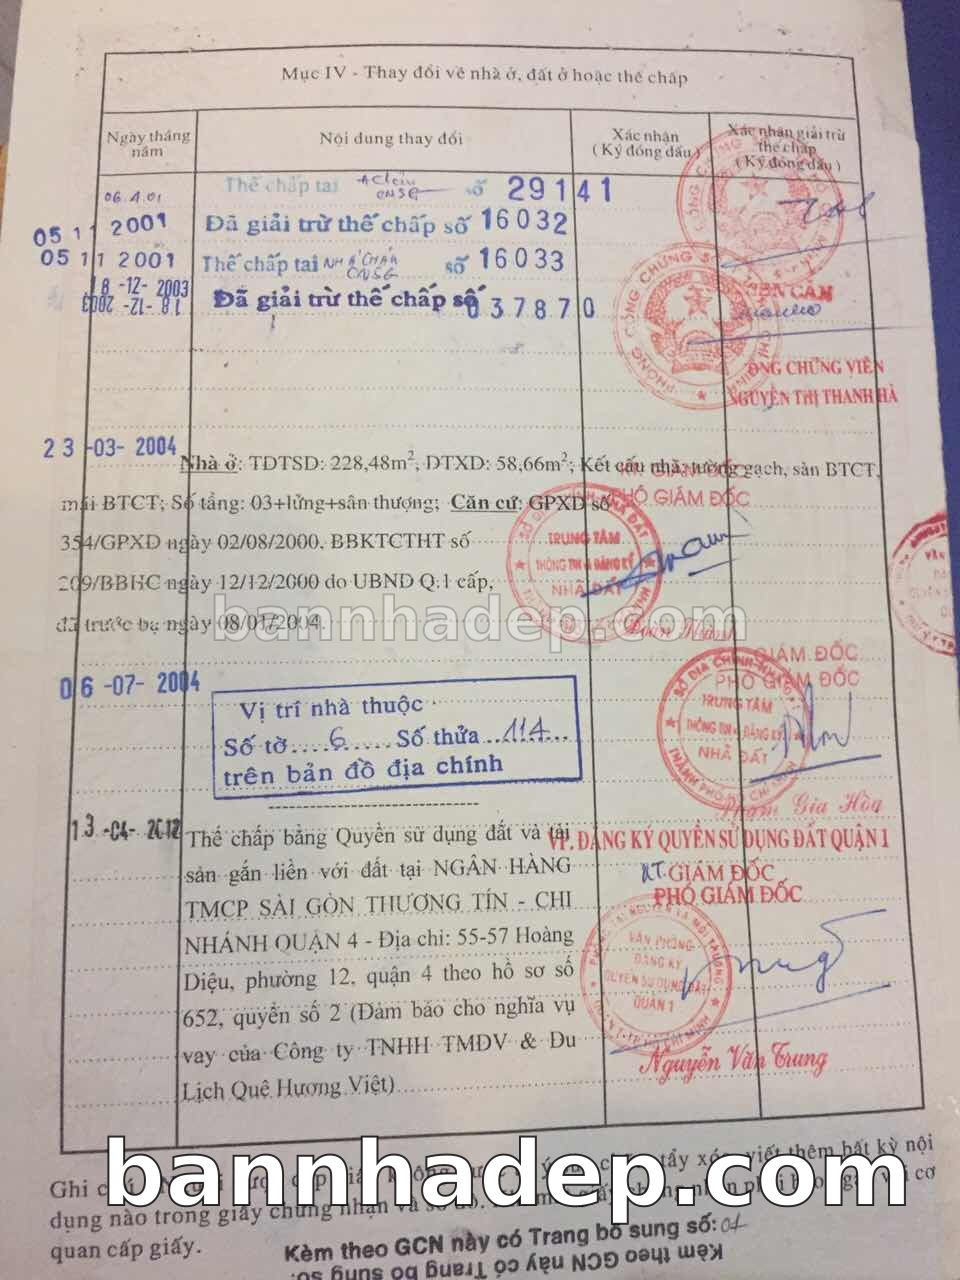 Mục IV - Thay đổi về nhà ở, đất ở hoặc thế chấp
Ngày tháng năm
Nội dung thay đổi
Xác nhận
( Ký đóng dấu )
Xác nhận giải trừ thế chấp
( Ký đóng dấu )
06.4.01 Thế chấp tại CNSG số 29141
05 11 2001 Đã giải trừ thế chấp số 16032
05 11 2001 Thế chấp tại NH Á CHÂU CNSG số 16033
18 -12- 2003 Đã giải trừ thế chấp số 037870
18 -12- 2003
CÔNG CHỨNG VIÊN
NGUYỄN THỊ THANH HÀ
23 -03- 2004
Nhà ở: TDTSD: 228,48m², DTXD: 58,66m²; Kết cấu nhà: tường gạch, sàn BTCT,
mái BTCT; Số tầng: 03+lửng+sân thượng; Căn cứ: GPXD số
354/GPXD ngày 02/08/2000, BBKTCTHT số
209/BBHC ngày 12/12/2000 do UBND Q.1 cấp,
đã trước bạ ngày 08/01/2004.
KT. GIÁM ĐỐC
PHÓ GIÁM ĐỐC
TRUNG TÂM
THÔNG TIN & ĐĂNG KÝ
NHÀ ĐẤT
bannhadep.com
06 -07- 2004
Vị trí nhà thuộc
Số tờ....6.....Số thửa..114...
trên bản đồ địa chính
GIÁM ĐỐC
PHÓ GIÁM ĐỐC
TRUNG TÂM
THÔNG TIN & ĐĂNG KÝ
NHÀ ĐẤT
Phạm Gia Hòa
13 -04- 2012
Thế chấp bằng Quyền sử dụng đất và tài
sản gắn liền với đất tại NGÂN HÀNG
TMCP SÀI GÒN THƯƠNG TÍN - CHI
NHÁNH QUẬN 4 - Địa chỉ: 55-57 Hoàng
Diệu, phường 12, quận 4 theo hồ sơ số
652, quyển số 2 (Đảm bảo cho nghĩa vụ
vay của Công ty TNHH TMDV & Du
Lịch Quê Hương Việt)
VP. ĐĂNG KÝ QUYỀN SỬ DỤNG ĐẤT QUẬN 1
KT. GIÁM ĐỐC
PHÓ GIÁM ĐỐC
VĂN PHÒNG
ĐĂNG KÝ
QUYỀN SỬ DỤNG ĐẤT
QUẬN 1
Nguyễn Văn Trung
bannhadep.com
Ghi tẩy xóa, viết thêm bất kỳ nội
dung nào trong giấy chứng nhận và sơ đồ. cơ
quan cấp giấy.
Kèm theo GCN này có Trang bổ sung số: 01
Kèm theo GCN này có Trang bổ sung số: